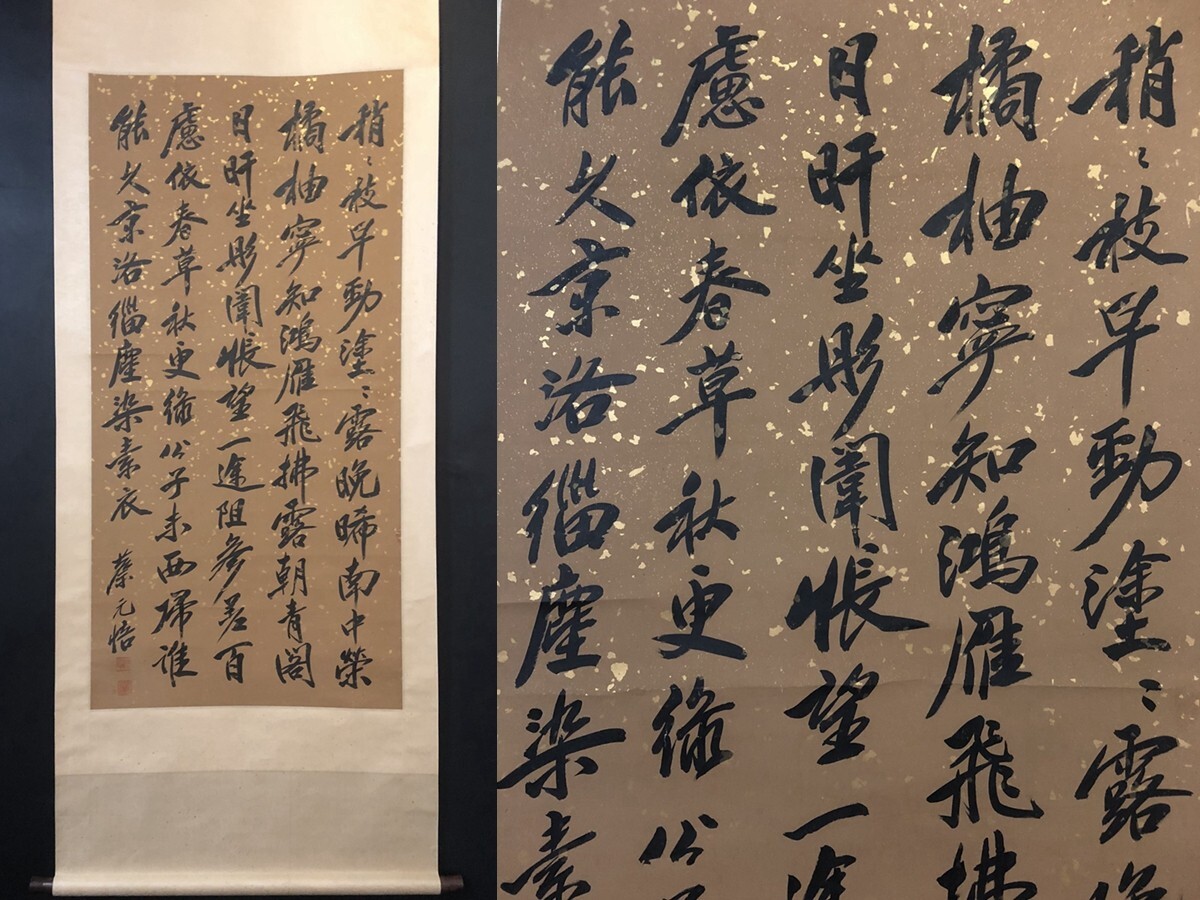 稍〻枝早勁塗〻露晚晞南中榮
橘柚寧知鴻雁飛拂露朝青閣
日旰坐彤闈悵望一途阻參差百
慮依春草秋更綠公子未西歸誰
能久京洛緇塵染素衣 蔡元培
稍〻枝早勁塗〻露晚
橘柚寧知鴻雁飛拂
日旰坐彤闈悵望一途
慮依春草秋更綠公子
能久京洛緇塵染素